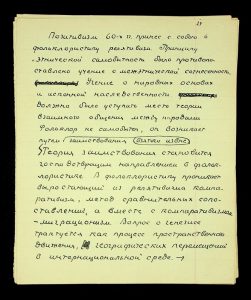 29
Позитивизм 60-х гг. принес с собой в
фольклористику релятивизм. Принципу
этнической самобытности было противопо-
ставлено учение о межэтнической
Учение о мировых основах
и исконной наследственности
должно было уступить место теории
взаимного общения между народами
Фольклор не самобытен, он возникает
путем заимствования
Теория заимствования становится
господствующим направлением в фоль-
клористике. В фольклористику проникает
вырастающий из релятивизма компа-
ративизм, метод сравнительных сопо-
ставлений, а вместе с компаративизмом
– миграционизм. Вопрос о генезисе
трактуется как процесс пространственного
движения, географических перемещений
в интернациональной среде. →